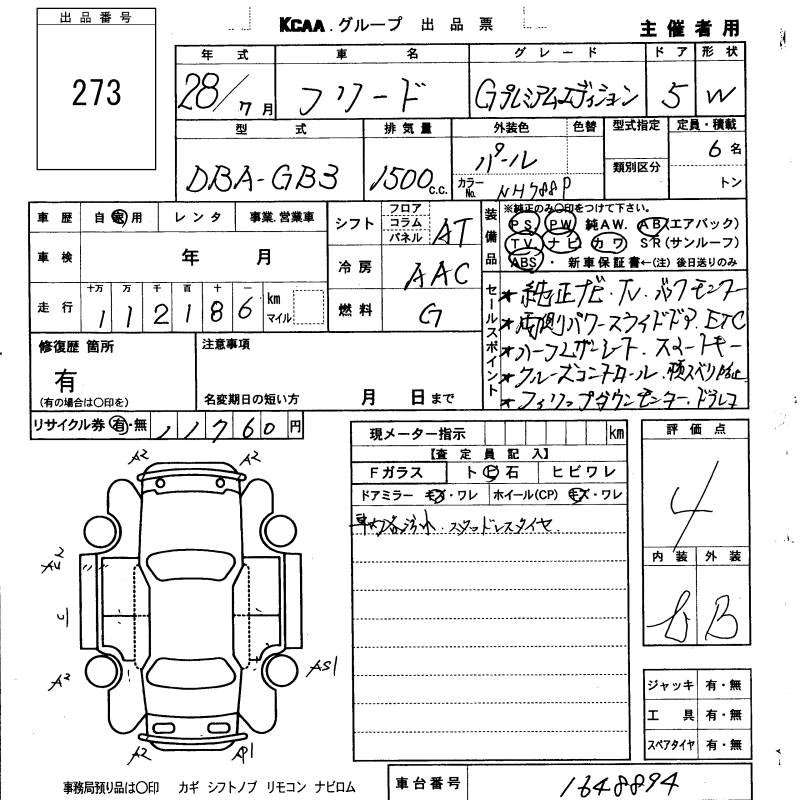 出品番号
273
KCAA.グループ 出品票
主催者用
年式 車名 グレード ドア 形状
28/7月 フリード Gプレミアムエディション 5 W
型式 排気量 外装色 色替 型式指定 定員・積載
DBA-GB3 1500c.c. パール 6名
カラーNo. NH788P 類別区分 トン
車歴 自家用 レンタ 事業.営業車
シフト フロア コラム パネル AT
車検 年 月
冷房 AAC
走行 十万 万 千 百 十 一 km マイル
112186
燃料 G
装備品 ※純正のみ○印をつけて下さい。
PS PW 純AW. AB(エアバック)
TV ナビ カワ SR(サンルーフ)
ABS ・ 新車保証書←(注)後日送りのみ
セールスポイント
★純正ナビ・TV・バックモニター
★両側パワースライドドア.ETC
★ハーフレザーシート.スマートキー
★クルーズコントロール.横スベリ防止
★フィリップダウンモニター.ドラレコ
修復歴 箇所
有
(有の場合は○印を)
注意事項
名変期日の短い方 月 日まで
リサイクル券 有・無 11760円
現メーター指示 km
【査定員記入】
Fガラス ト ビ 石 ヒビワレ
ドアミラー キズ・ワレ ホイール(CP) キズ・ワレ
車内各汚れ.スタッドレスタイヤ.
評価点
4
内装 外装
B
A2 A2
C
A2 AS1
A2
ジャッキ 有・無
工具 有・無
スペアタイヤ 有・無
事務局預り品は○印 カギ シフトノブ リモコン ナビロム
車台番号 1648894